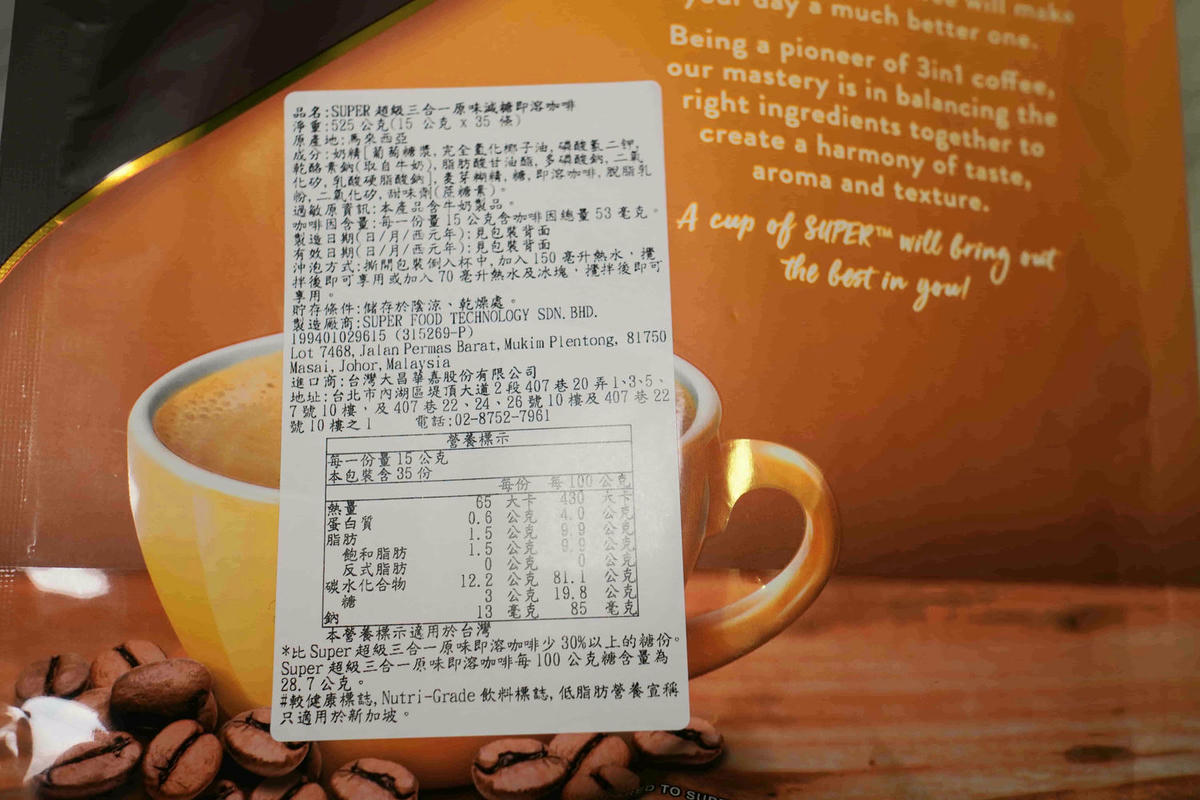 will make
your day a much better one.
Being a pioneer of 3in1 coffee,
our mastery is in balancing the
right ingredients together to
create a harmony of taste,
aroma and texture.
A cup of SUPER™ will bring out
the best in you!
品名:SUPER 超級三合一原味減糖即溶咖啡
淨重:525 公克(15 公克 x 35 條)
原產地:馬來西亞
成分:奶精[葡萄糖漿, 完全氫化椰子油, 磷酸氫二鉀,
乾酪素鈉(取自牛奶), 脂肪酸甘油酯, 多磷酸鈉, 二氧
化矽, 乳酸硬脂酸鈉], 麥芽糊精, 糖, 即溶咖啡, 脫脂乳
粉, 二氧化矽, 甜味劑(蔗糖素)。
過敏原資訊:本產品含牛奶製品。
咖啡因含量:每一份量 15 公克含咖啡因總量 53 毫克。
製造日期(日/月/西元年):見包裝背面
有效日期(日/月/西元年):見包裝背面
沖泡方式:撕開包裝倒入杯中, 加入 150 毫升熱水, 攪
拌後即可享用或加入 70 毫升熱水及冰塊, 攪拌後即可
享用。
貯存條件:儲存於陰涼、乾燥處。
製造廠商:SUPER FOOD TECHNOLOGY SDN. BHD.
199401029615 (315269-P)
Lot 7468, Jalan Permas Barat, Mukim Plentong, 81750
Masai, Johor, Malaysia
進口商:台灣大昌華嘉股份有限公司
地址:台北市內湖區堤頂大道 2 段 407 巷 20 弄 1、3、5、
7 號 10 樓, 及 407 巷 22、24、26 號 10 樓及 407 巷 22
號 10 樓之 1 電話:02-8752-7961
營養標示
每一份量 15 公克
本包裝含 35 份
每份 每 100 公克
熱量 65 大卡 430 大卡
蛋白質 0.6 公克 4.0 公克
脂肪 1.5 公克 9.9 公克
飽和脂肪 1.5 公克 9.9 公克
反式脂肪 0 公克 0 公克
碳水化合物 12.2 公克 81.1 公克
糖 3 公克 19.8 公克
鈉 13 毫克 85 毫克
本營養標示適用於台灣
*比 Super 超級三合一原味即溶咖啡少 30%以上的糖份。
Super 超級三合一原味即溶咖啡每 100 公克糖含量為
28.7 公克。
#較健康標誌, Nutri-Grade 飲料標誌, 低脂肪營養宣稱
只適用於新加坡。
TO